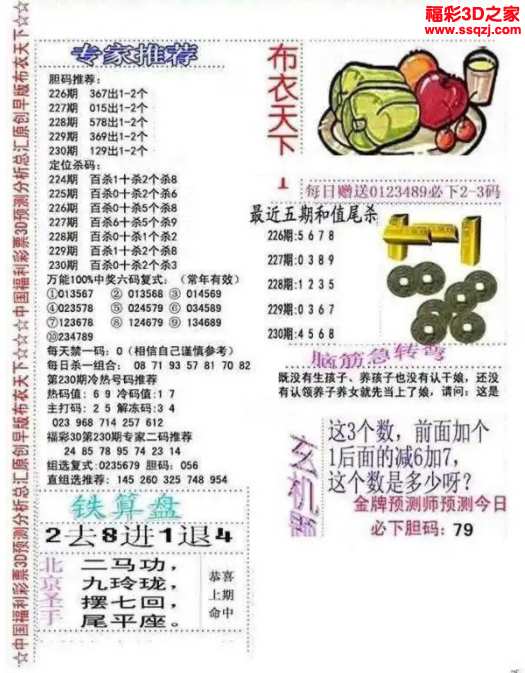 福彩3D之家
www.ssqzj.com
☆☆中国福利彩票3D预测分析总汇原创早版布衣天下☆☆☆中国福利彩票3D预测分析总汇原创早版布衣天下☆☆
专家推荐
胆码推荐:
226期 367出1-2个
227期 015出1-2个
228期 578出1-2个
229期 369出1-2个
230期 129出1-2个
定位杀码:
224期 百杀1十杀2个杀8
225期 百杀0十杀2个杀6
226期 百杀0十杀5个杀8
227期 百杀6十杀5个杀9
228期 百杀0十杀1个杀2
229期 百杀0十杀1个杀8
230期 百杀0十杀2个杀3
万能100%中奖六码复式: (常年有效)
①013567 ② 013568 ③ 014569
④023578 ⑤ 024579 ⑥ 034589
⑦123678 ⑧ 124679 ⑨ 134689
⑩234789
每天禁一码: 0 (相信自己谨慎参考)
每日杀一组合: 08 71 93 57 81 70 82
第230期冷热号码推荐
热码值: 6 9 冷码值: 1 7
主打码: 2 5 解冻码: 3 4
023 968 714 257 612
福彩3D第230期专家二码推荐
24 85 78 95 74 23 14
组选复式:0235679 胆码: 056
直组选推荐: 145 260 325 748 954
铁算盘
2去8进1退4
北京圣手
二马功,
九玲珑,
摆七回,
尾平座。
恭喜
上期
命中
布衣天下
每日赠送0123489必下2-3码
最近五期和值尾杀
226期:5 6 7 8
227期:0 3 8 9
228期:1 2 3 5
229期:0 3 6 7
230期:4 5 6 8
脑筋急转弯
既没有生孩子、养孩子也没有认干娘，还没
有认领养子养女就先当上了娘，请问：这是
玄机
这3个数，前面加个
1后面的减6加7，
这个数是多少呀？
金牌预测师预测今日
必下胆码：79